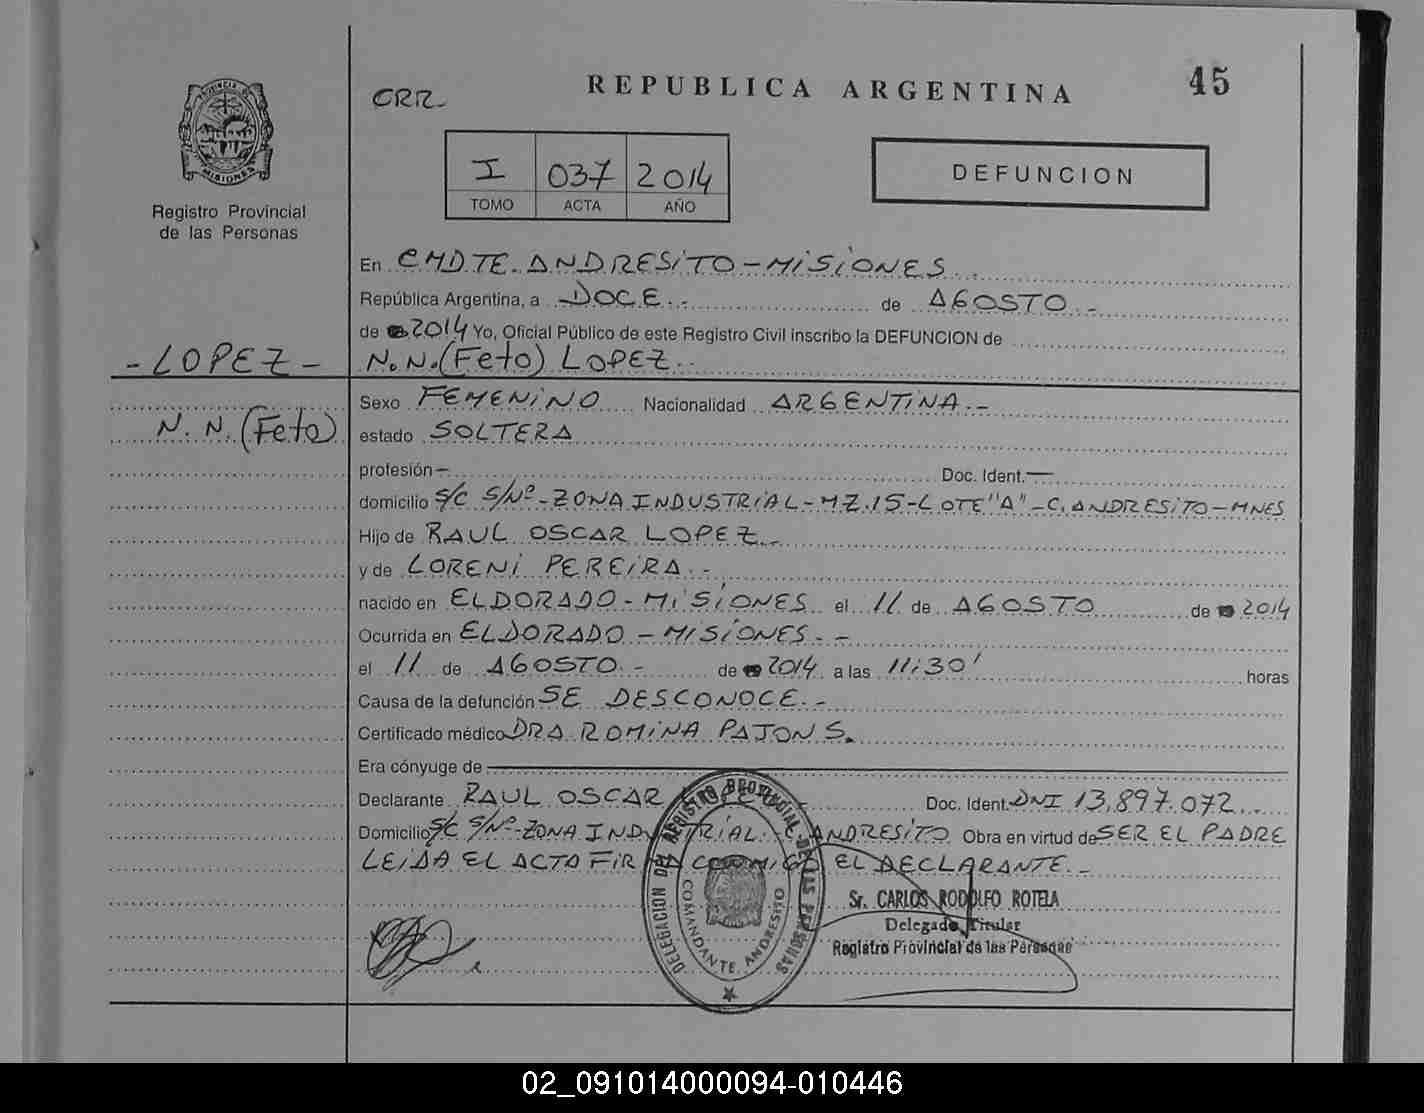 PROVINCIA DE
MISIONES
Registro Provincial
de las Personas
CRR
REPUBLICA ARGENTINA
45
I 037 2014
TOMO ACTA AÑO
DEFUNCION
En CMDTE. ANDRESITO - MISIONES
República Argentina, a DOCE.- de AGOSTO.-
de 2014 Yo, Oficial Público de este Registro Civil inscribo la DEFUNCION de
- LOPEZ - N.N. (Feto) LOPEZ.
Sexo FEMENINO Nacionalidad ARGENTINA.-
N. N. (Feto) estado SOLTERA
profesión - Doc. Ident. -
domicilio S/C S/Nº - ZONA INDUSTRIAL - MZ.15 - LOTE "A" - C. ANDRESITO - MNES
Hijo de RAUL OSCAR LOPEZ.-
y de LORENI PEREIRA.-
nacido en ELDORADO - MISIONES el 11 de AGOSTO de 2014
Ocurrida en ELDORADO - MISIONES.-
el 11 de AGOSTO.- de 2014 a las 11:30' horas
Causa de la defunción SE DESCONOCE.-
Certificado médico DRA ROMINA PAJON S.
Era cónyuge de
Declarante RAUL OSCAR LOPEZ.- Doc. Ident. DNI 13.897.072.
Domicilio S/C S/Nº - ZONA INDUSTRIAL - C. ANDRESITO Obra en virtud de SER EL PADRE
LEIDA EL ACTA FIRMA CONMIGO EL DECLARANTE.-
DELEGACION DEL REGISTRO PROVINCIAL DE LAS PERSONAS
COMANDANTE ANDRESITO
Sr. CARLOS RODOLFO ROTELA
Delegado Titular
Registro Provincial de las Personas
02_091014000094-010446